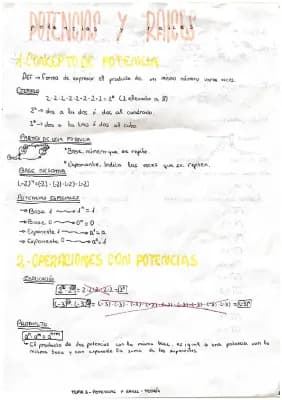 POTENCIAS Y RAÍCES
1. CONCEPTO DE POTENCIA
DEF → Forma de expresar el producto de un mismo número varias veces.
EJEMPLO
2·2·2·2·2·2·2·2 = 2⁸ (2 elevado a 8)
2² → dos a la dos ó dos al cuadrado.
2³ → dos a la tres ó dos al cubo.
PARTES DE UNA POTENCIA
Base
*Base, número que se repite.
*Exponente, indica las veces que se repiten.
BASE NEGATIVA
(-2)⁴ = (-2)·(-2)·(-2)·(-2)
POTENCIAS ESPECIALES
→ Base 1 → 1ⁿ = 1
→ Base 0 → 0ⁿ = 0
→ Exponente 1 → a¹ = a
→ Exponente 0 → a⁰ = 1
2.- OPERACIONES CON POTENCIAS
EXPLICACIÓN
PRODUCTO
El producto de dos potencias con la misma base, es igual a una potencia con la
misma base y con exponente la suma de los exponentes.
TEMA 2 - POTENCIAS Y RAÍCES - TEORÍA